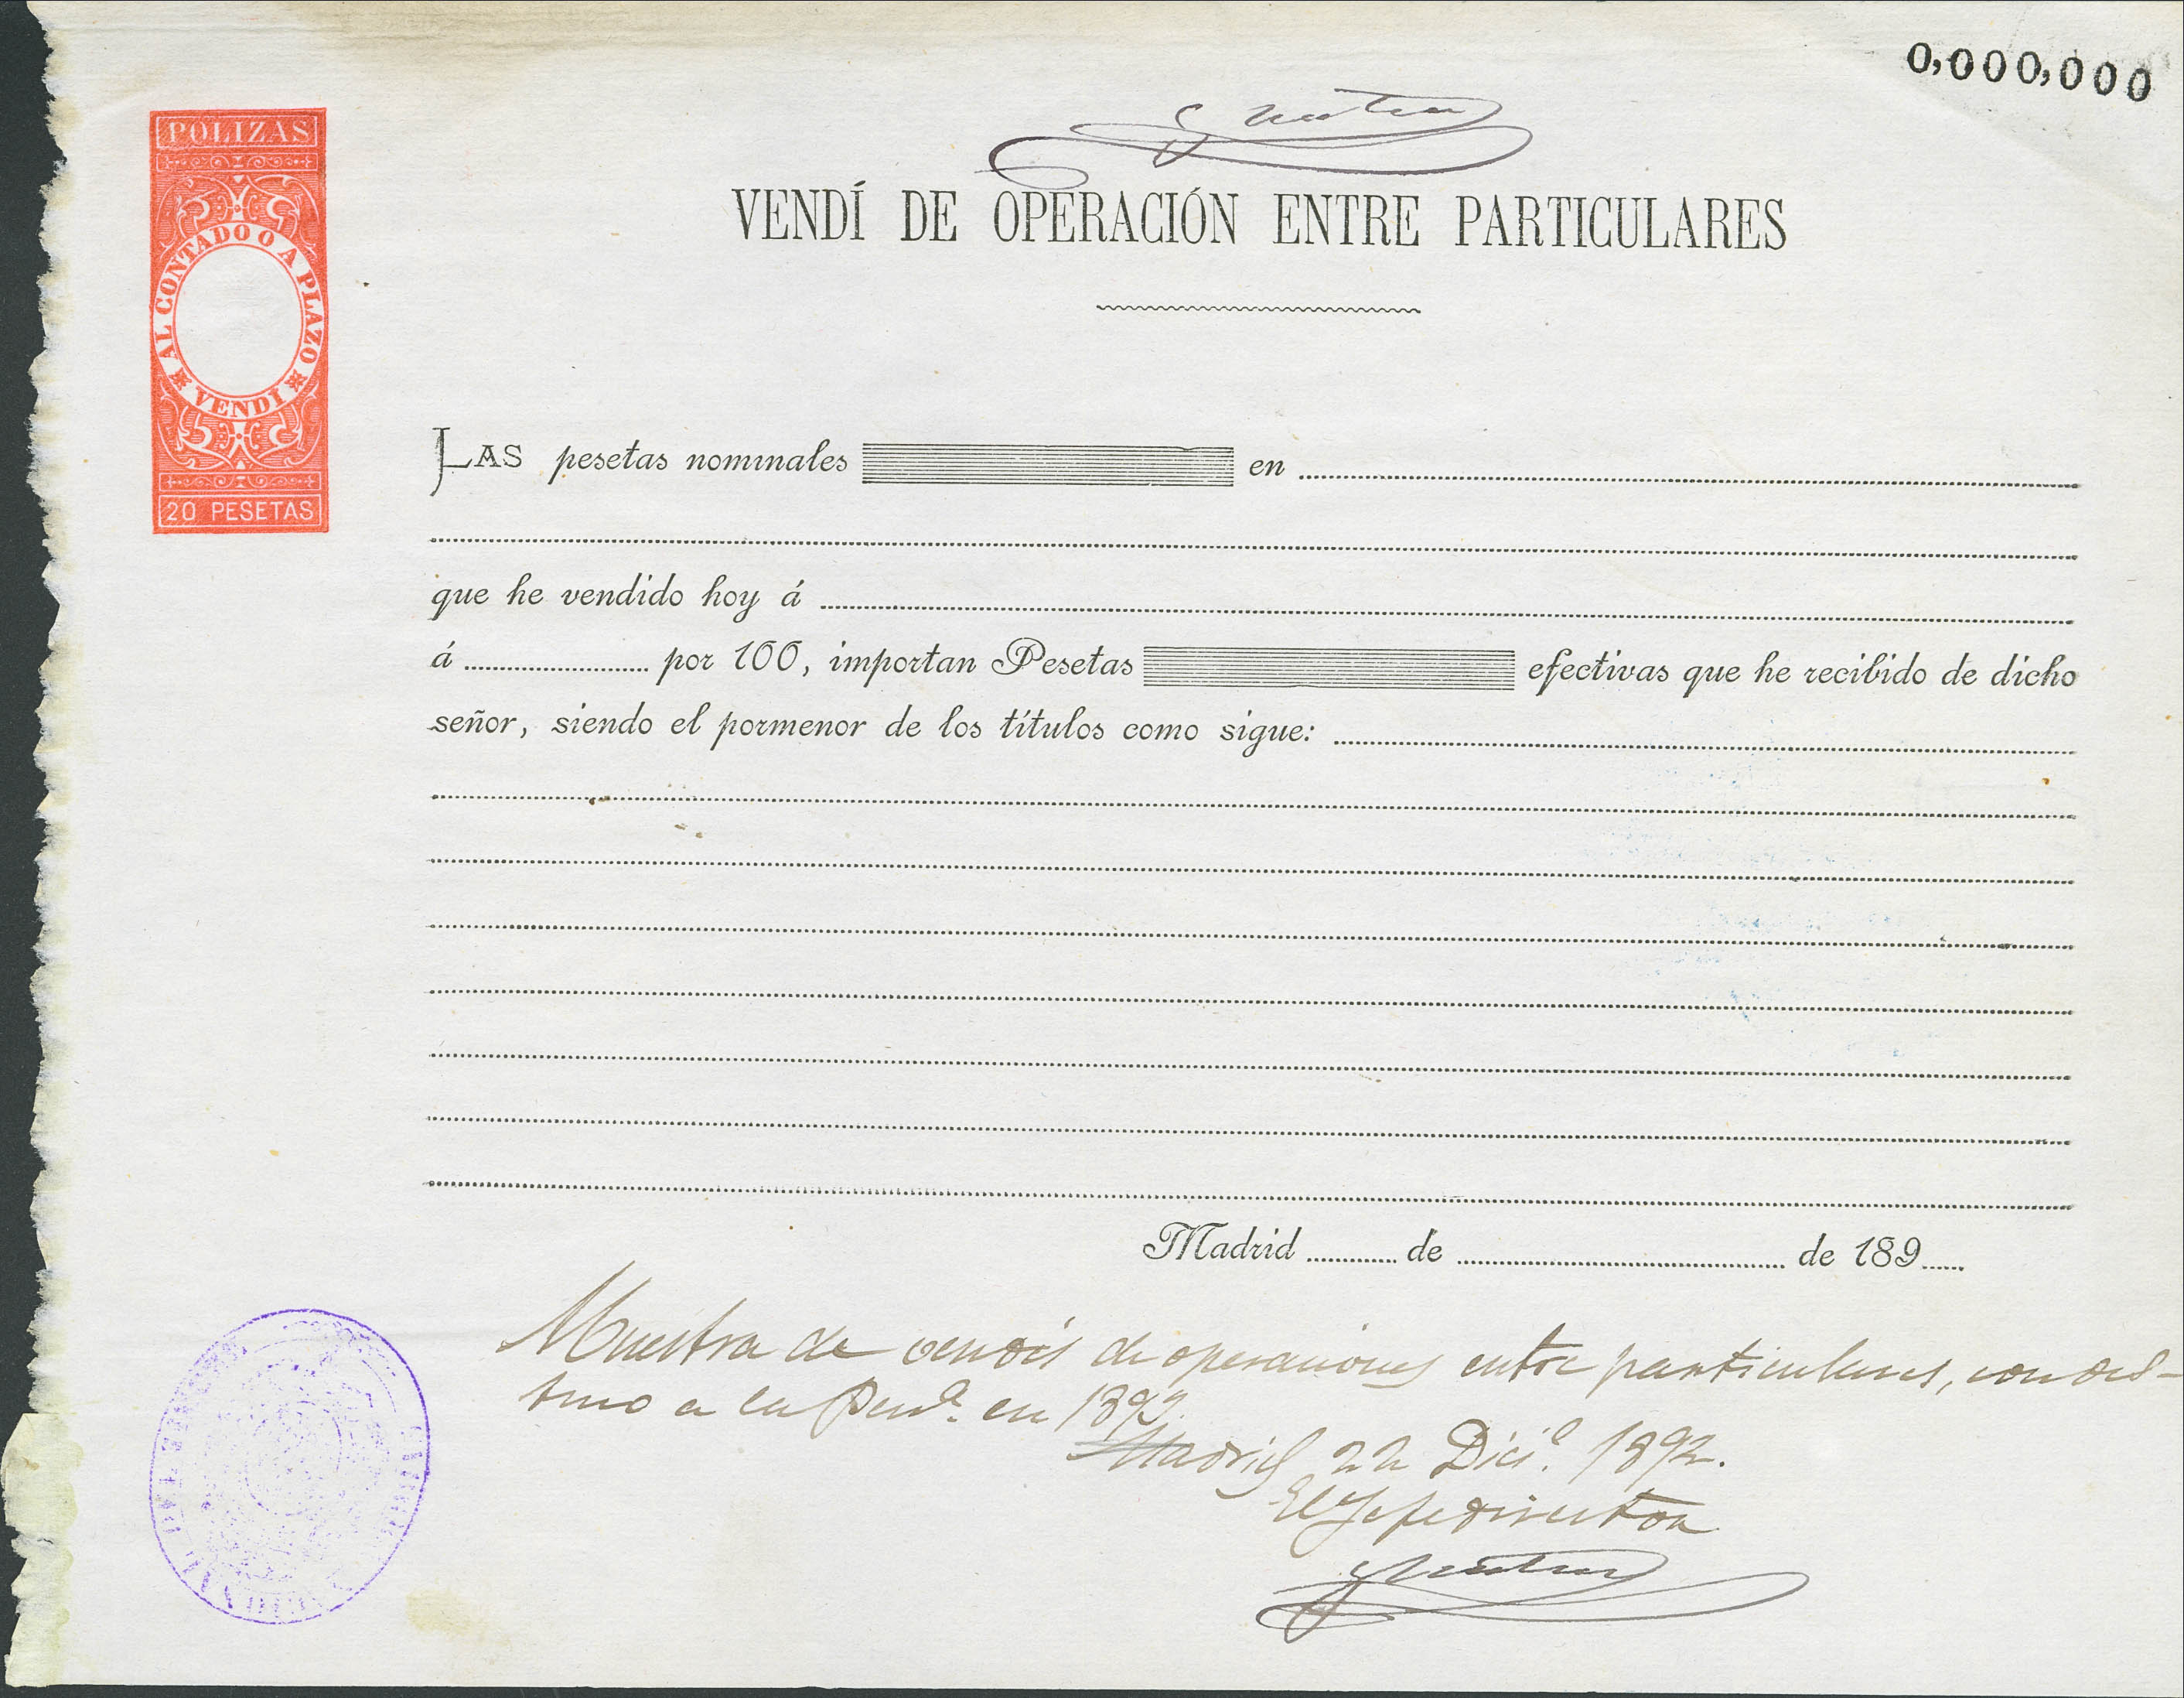 0,000,000
POLIZAS
AL CONTADO O A PLAZO
VENDÍ
20 PESETAS
VENDÍ DE OPERACIÓN ENTRE PARTICULARES
LAS pesetas nominales en
que he vendido hoy á
á por 100, importan Pesetas efectivas que he recibido de dicho
señor, siendo el pormenor de los títulos como sigue:
Madrid de de 189
Muestra de vendis de operaciones entre particulares, con des-
tino a la Penª. en 1893.
Madrid 22 Dicº. 1892.
El Jefe director